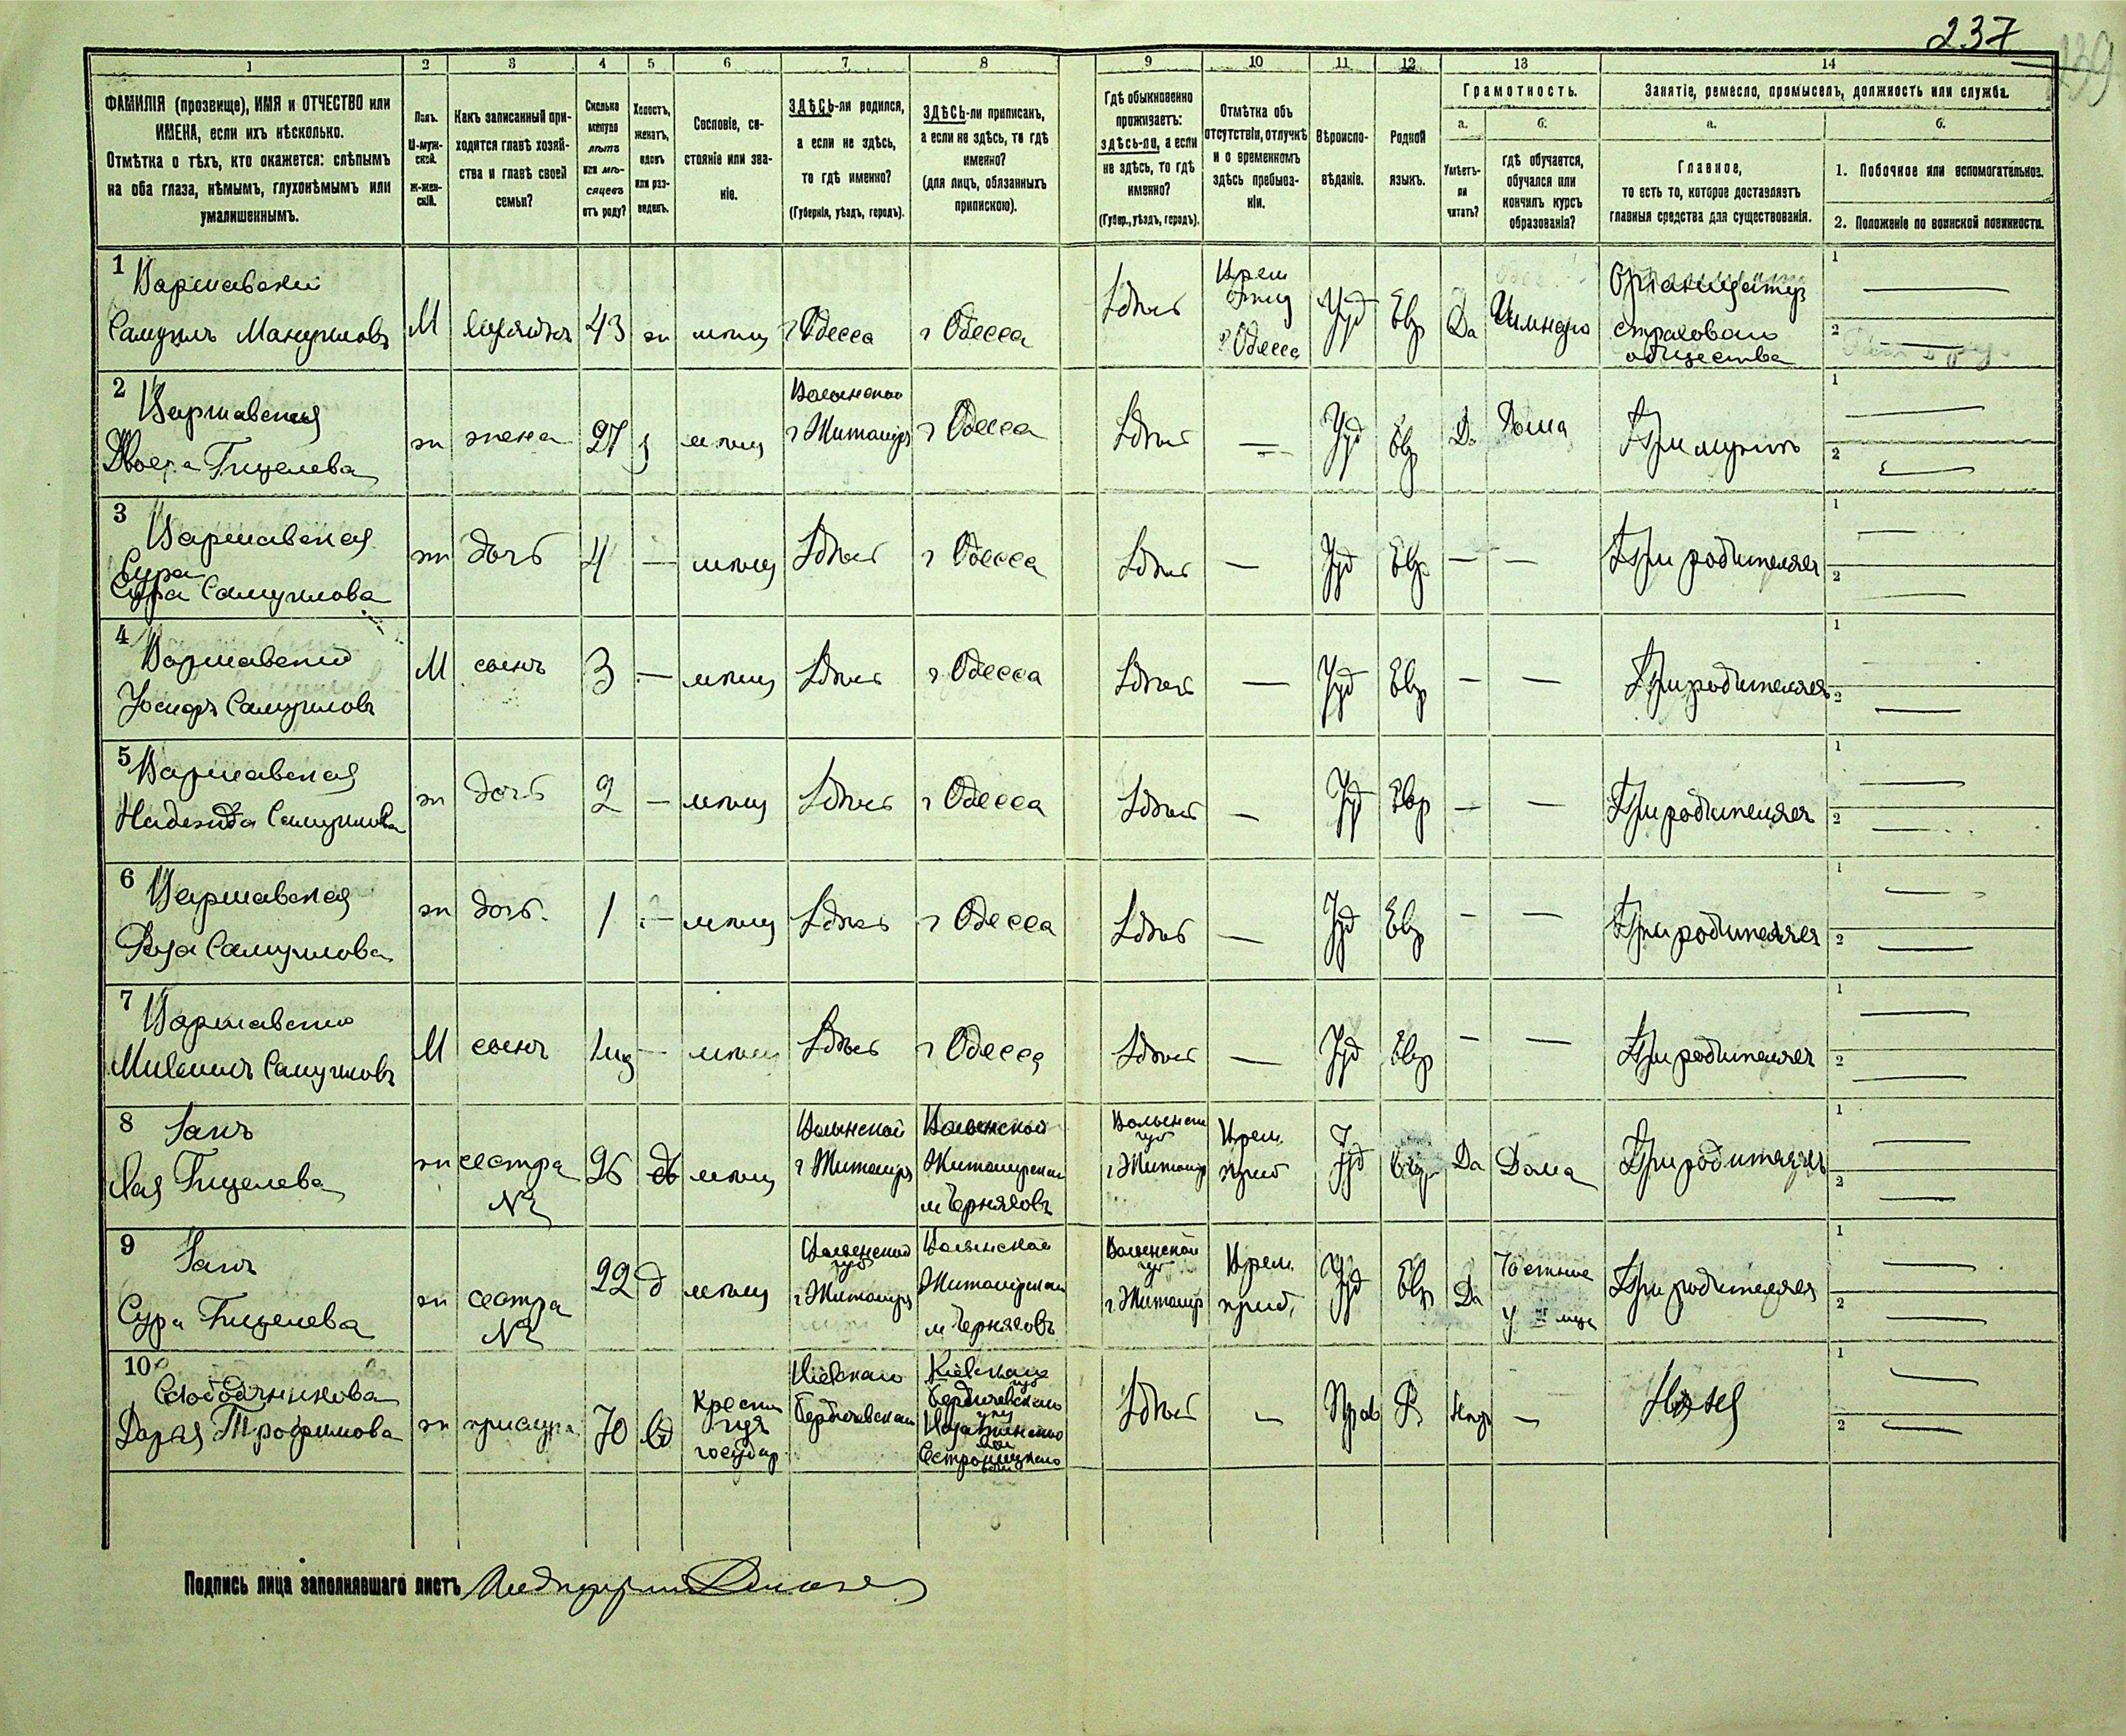 237
139
1
2
3
4
5
6
7
8
9
10
11
12
13
14
ФАМИЛІЯ (прозвище), ИМЯ и ОТЧЕСТВО или
ИМЕНА, если ихъ нѣсколько.
Отмѣтка о тѣхъ, кто окажется: слѣпымъ
на оба глаза, нѣмымъ, глухонѣмымъ или
умалишеннымъ.
Полъ.
М-муж-
ской.
Ж-жен-
скій.
Какъ записанный при-
ходится главѣ хозяй-
ства и главѣ своей
семьи?
Сколько
минуло
лѣтъ
или мѣ-
сяцевъ
отъ роду?
Холостъ,
женатъ,
вдовъ
или раз-
веденъ.
Сословіе, со-
стояніе или зва-
ніе.
ЗДѢСЬ-ли родился,
а если не здѣсь,
то гдѣ именно?
(Губернія, уѣздъ, городъ).
ЗДѢСЬ-ли приписанъ,
а если не здѣсь, то гдѣ
именно?
(для лицъ, обязанныхъ
припискою).
Гдѣ обыкновенно
проживаетъ:
здѣсь-ли, а если
не здѣсь, то гдѣ
именно?
(Губер., уѣздъ, городъ).
Отмѣтка объ
отсутствіи, отлучкѣ
и о временномъ
здѣсь пребыва-
ніи.
Вѣроиспо-
вѣданіе.
Родной
языкъ.
Грамотность.
а.
Умѣетъ-
ли
читать?
б.
гдѣ обучается,
обучался или
кончилъ курсъ
образованія?
Занятіе, ремесло, промыселъ, должность или служба.
а.
Главное,
то есть то, которое доставляетъ
главныя средства для существованія.
б.
1. Побочное или вспомогательное.
2. Положеніе по воинской повинности.
1 Варшавскій
Самуилъ Мануиловъ
М
43
ж
мѣщ
г Одесса
г Одесса
Здѣсь
Врем
г Одесса
Іуд
Евр
Да
страхового
общества
1
2
2 Варшавская
Гицелева
ж
жена
27
мѣщ
Волынской
г Житоміръ
г Одесса
Здѣсь
—
Іуд
Евр
Да
Дома
При мужѣ
1
2
3 Варшавская
Сура
Сура Самуилова
ж
дочь
4
—
мѣщ
Здѣсь
г Одесса
Здѣсь
—
Іуд
Евр
—
—
При родителяхъ
1
2
4 Варшавскій
Іосифъ Самуиловъ
М
сынъ
3
—
мѣщ
Здѣсь
г Одесса
Здѣсь
—
Іуд
Евр
—
—
При родителяхъ
1
2
5 Варшавская
Надежда Самуилова
ж
дочь
2
—
мѣщ
Здѣсь
г Одесса
Здѣсь
—
Іуд
Евр
—
—
При родителяхъ
1
2
6 Варшавская
Роза Самуилова
ж
дочь
1
—
мѣщ
Здѣсь
г Одесса
Здѣсь
—
Іуд
Евр
—
—
При родителяхъ
1
2
7 Варшавскій
Михаилъ Самуиловъ
М
сынъ
—
мѣщ
Здѣсь
г Одесса
Здѣсь
—
Іуд
Евр
—
—
При родителяхъ
1
2
8
Гицелева
ж
сестра
26
мѣщ
Волынской
г Житоміръ
Волынской
Житомірскаго
м Черняховъ
Волынской
губ
г Житомір
Врем
преб
Іуд
Евр
Да
Дома
При родителяхъ
1
2
9
Сура Гицелева
ж
сестра
22
д
мѣщ
Волынской
губ
г Житоміръ
Волынской
Житомірскаго
м Черняховъ
Волынской
губ
г Житомір
Врем
преб.
Іуд
Евр
Да
При родителяхъ
1
2
10
Дарья Трофимова
ж
прислуга
70
вд
Крестьян
государ
Кіевскаго
Бердичевскаго
Кіевская
губ
Бердичевскаго
Здѣсь
—
Прав
Р
—
Няня
1
2
Подпись лица заполнявшаго листъ